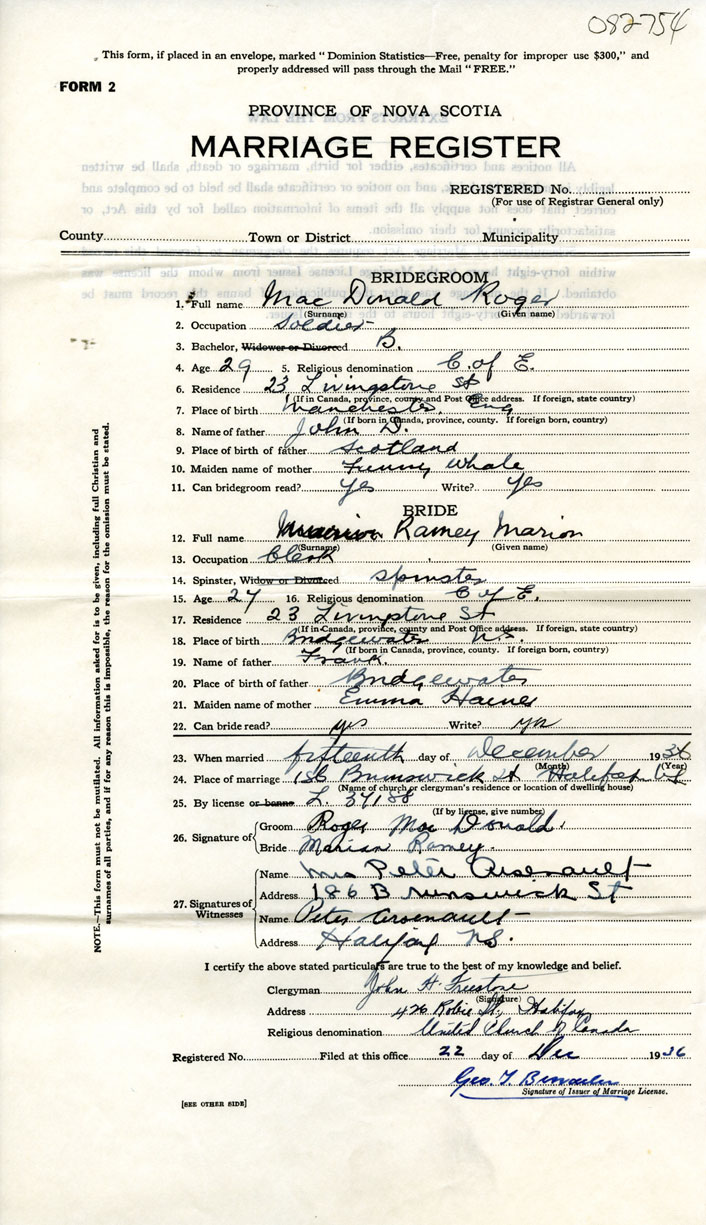 082754
This form, if placed in an envelope, marked "Dominion Statistics—Free, penalty for improper use $300," and
properly addressed will pass through the Mail "FREE."
FORM 2
PROVINCE OF NOVA SCOTIA
MARRIAGE REGISTER
REGISTERED No.
(For use of Registrar General only)
County Town or District Municipality
BRIDEGROOM
1. Full name Mac Donald Roger
(Surname) (Given name)
2. Occupation Soldier
3. Bachelor, Widower or Divorced B.
4. Age 29 5. Religious denomination C. of E.
6. Residence 23 Livingstone St
(If in Canada, province, county and Post Office address. If foreign, state country)
7. Place of birth Manchester, Eng
(If born in Canada, province, county. If foreign born, country)
8. Name of father John D.
9. Place of birth of father Scotland
10. Maiden name of mother Whale
11. Can bridegroom read? Yes Write? Yes
BRIDE
12. Full name Ramey Marion
(Surname) (Given name)
13. Occupation Clerk
14. Spinster, Widow or Divorced Spinster
15. Age 27 16. Religious denomination C of E.
17. Residence 23 Livingstone St
(If in Canada, province, county and Post Office address. If foreign, state country)
18. Place of birth Bridgewater N.S.
(If born in Canada, province, county. If foreign born, country)
19. Name of father Frank
20. Place of birth of father Bridgewater
21. Maiden name of mother Emma Haines
22. Can bride read? yes Write? yes
23. When married fifteenth day of December 1936
(Month) (Year)
24. Place of marriage Brunswick St Halifax NS
(Name of church or clergyman's residence or location of dwelling house)
25. By license or banns L. 34188
(If by license, give number)
26. Signature of
Groom Roger Mac Donald
Bride Marian Ramey.
27. Signatures of Witnesses
Name Mrs Peter Arsenault
Address 186 Brunswick St
Name Peter Arsenault
Address Halifax NS.
I certify the above stated particulars are true to the best of my knowledge and belief.
Clergyman John H. Freestone
(Signature)
Address 426 Robie St., Halifax
Religious denomination United Church of Canada
Registered No. Filed at this office 22 day of Dec 1936
Geo. T.
Signature of Issuer of Marriage License.
[SEE OTHER SIDE]
NOTE.—This form must not be mutilated. All information asked for is to be given, including full Christian and
surnames of all parties, and if for any reason this is impossible, the reason for the omission must be stated.